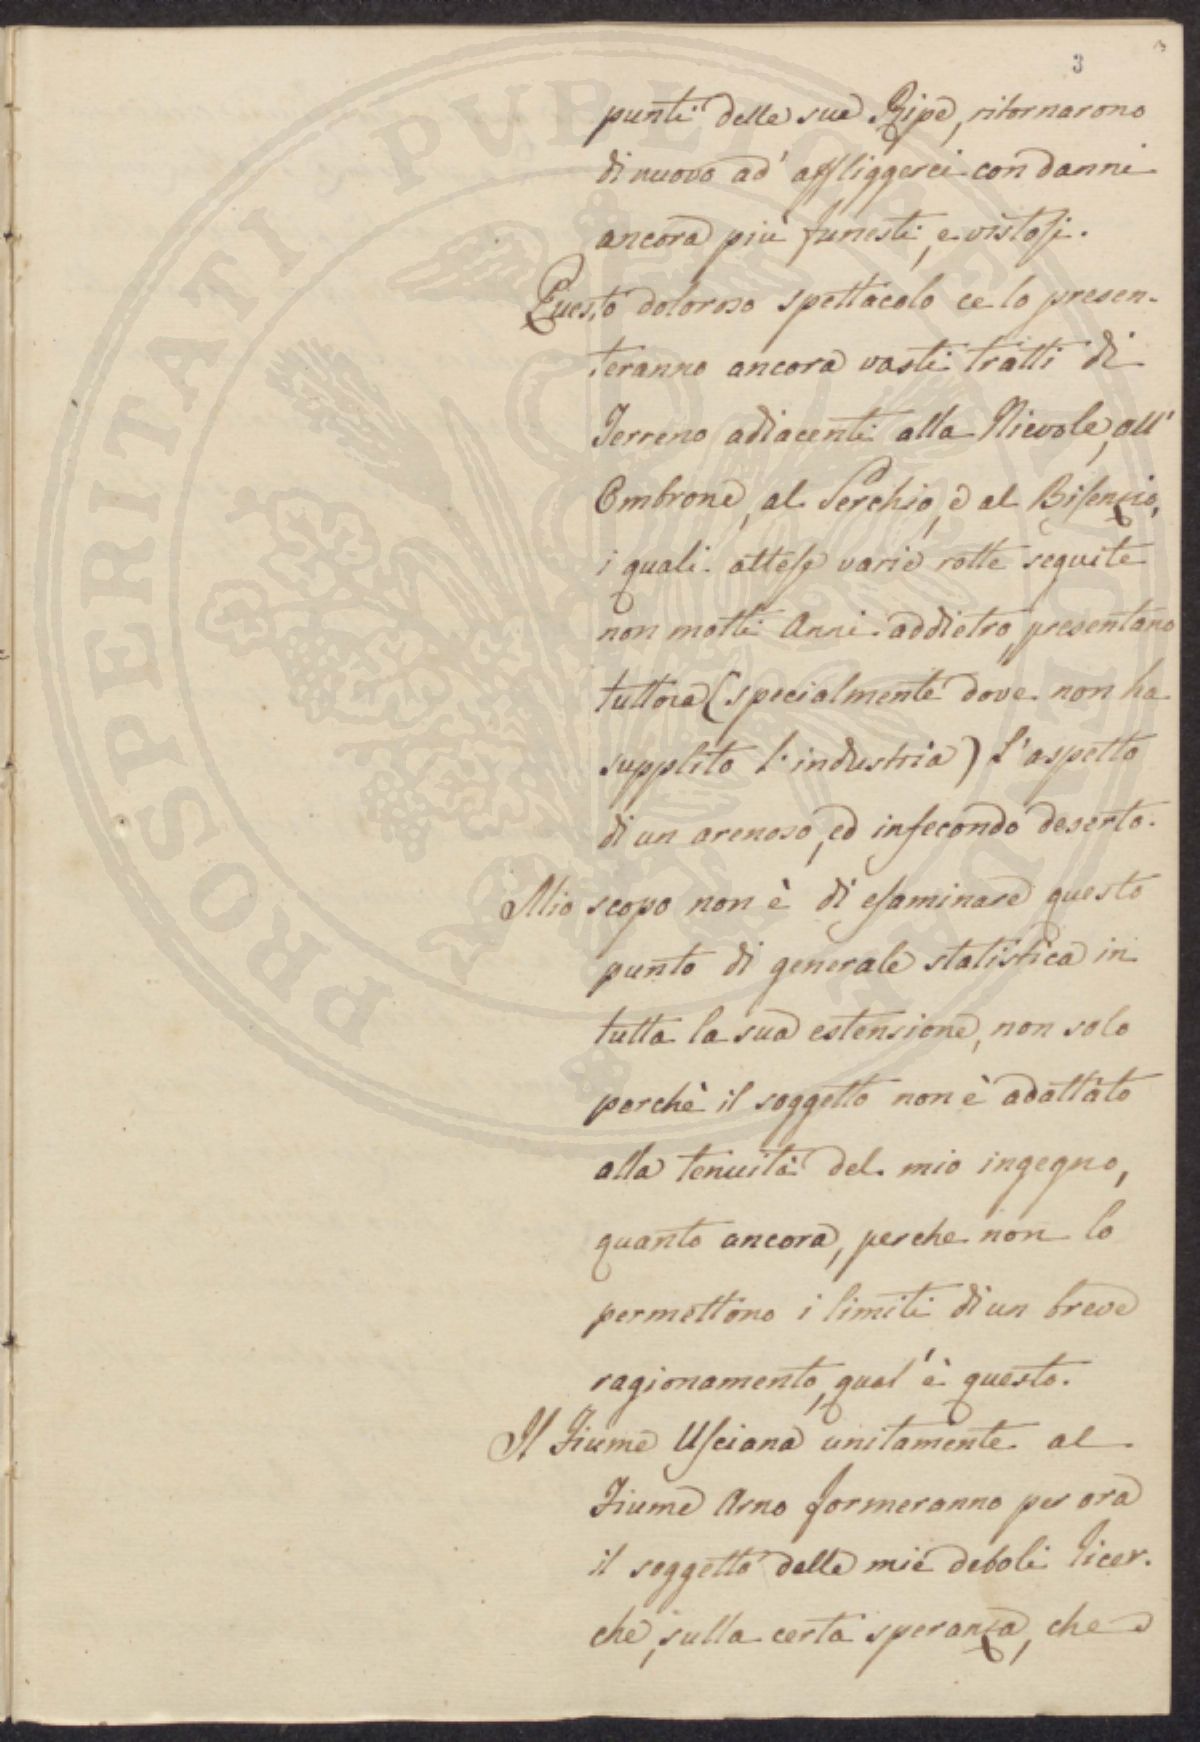 3
punti delle sue Ripe, ritornarono
di nuovo ad' affliggerci con danni
ancora più funesti, e vistosi.
Questo doloroso spettacolo ce lo presen-
teranno ancora vasti tratti di
Terreno adiacenti alla Nievole, all'
Ombrone, al Serchio, e al Bisenzio,
i quali attese varie rotte seguite
non molti Anni addietro, presentano
tuttora (specialmente dove non ha
supplito l'industria) l'aspetto
di un arenoso, ed infecondo deserto.
Mio scopo non è di esaminare questo
punto di generale statistica in
tutta la sua estensione, non solo
perchè il soggetto non è adattato
alla tenuità del mio ingegno,
quanto ancora, perche non lo
permettono i limiti di un breve
ragionamento, qual'è questo.
Il Fiume Usciana unitamente al
Fiume Arno formeranno per ora
il soggetto delle mie deboli ricer-
che, sulla certa speranza, che
PROSPERITATI PUBLICAE AUGENDAE